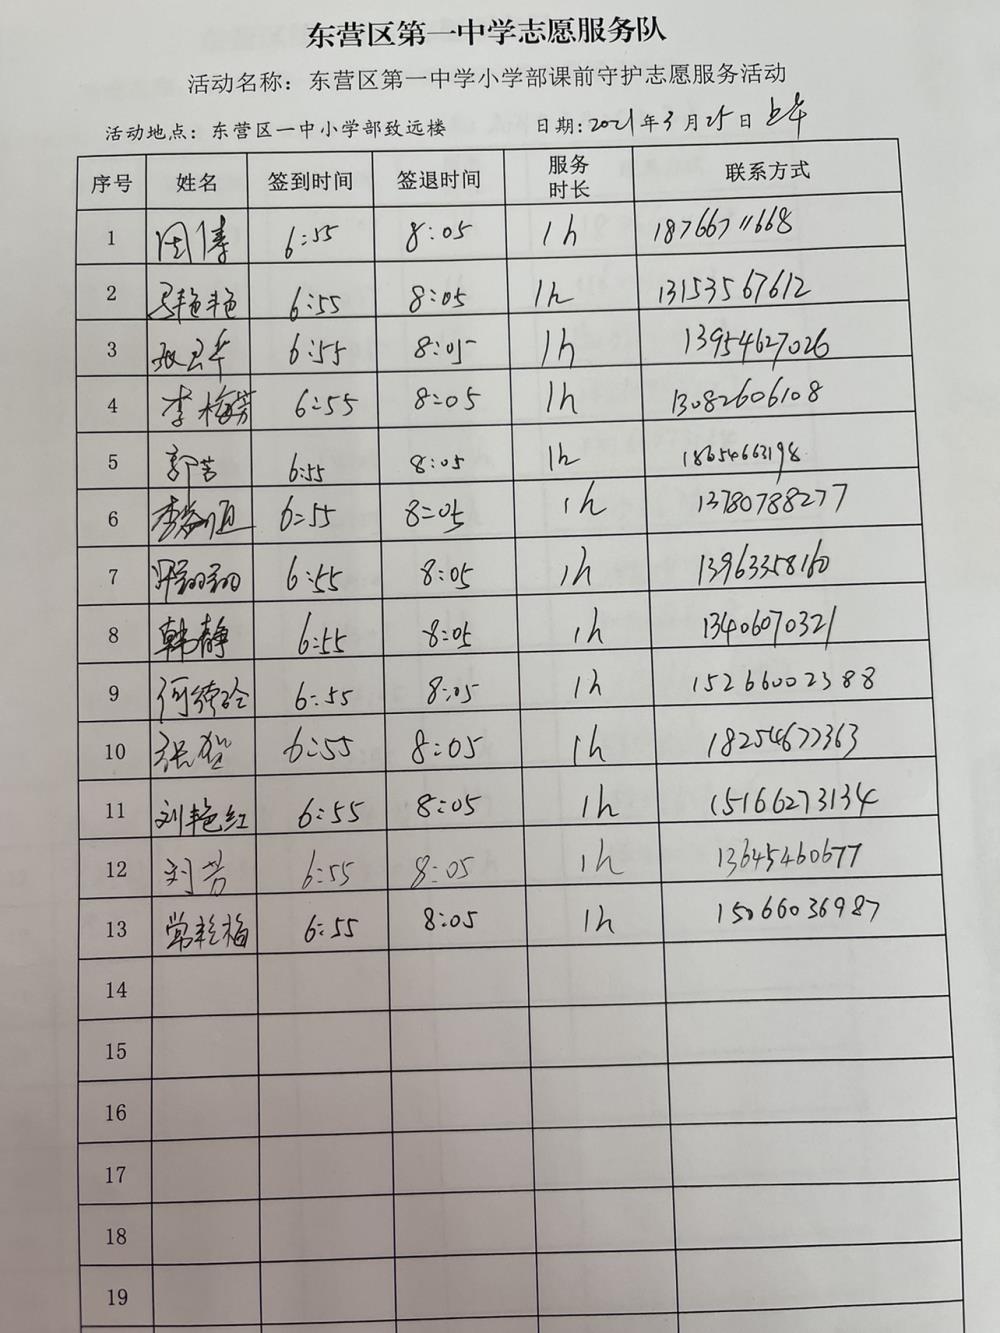 东营区第一中学志愿服务队
活动名称：东营区第一中学小学部课前守护志愿服务活动
活动地点：东营区一中小学部致远楼 日期:2021年3月25日 上午
序号 姓名 签到时间 签退时间 服务时长 联系方式
1 6:55 8:05 1h 18766711668
2 马艳艳 6:55 8:05 1h 13153567612
3 6:55 8:05 1h 13954627026
4 李梅芳 6:55 8:05 1h 13082606108
5 郭芳 6:55 8:05 1h 18654663198
6 6:55 8:05 1h 13780788277
7 6:55 8:05 1h 13963358160
8 韩静 6:55 8:05 1h 13406070321
9 6:55 8:05 1h 15266002388
10 6:55 8:05 1h 18254677363
11 刘艳红 6:55 8:05 1h 15166273134
12 刘芳 6:55 8:05 1h 13645460677
13 常彩梅 6:55 8:05 1h 15066036987
14
15
16
17
18
19